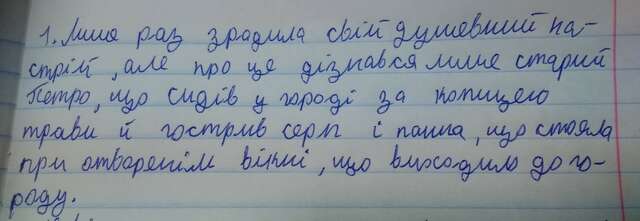 1. Лише раз зрадила свій душевний на-
стрій, але про це дізнався лише старий
Петро, що сидів у городі за копицею
трави й гострив серп і панна, що стояла
при отвореній вікні, що виходило до го-
роду.